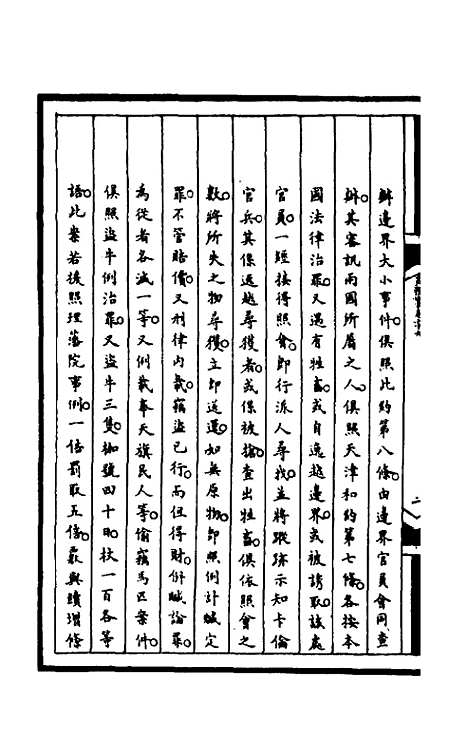 辦邊界大小事件俱照此約第八條由邊界官員會同查
辦其審訊兩國所屬之人俱照天津和約第七條各按本
國法律治罪又遇有牲畜或自逸越邊界或被誘取該處
官員一經接得照會即行派人尋找並將蹤跡示知卡倫
官兵其係逸越尋獲者或係被搶查出牲畜俱依照會之
數將所失之物尋獲立即送還如無原物即照例計贓定
罪不管賠償又刑律內載竊盜已行而但得財併贓論罪
為從者各減一等又例載奉天旗民人等偷竊馬匹案件
俱照盜牛例治罪又盜牛三隻枷號四十日杖一百各等
語此案若援照理藩院事例一倍罰取五倍覈與續增條
二